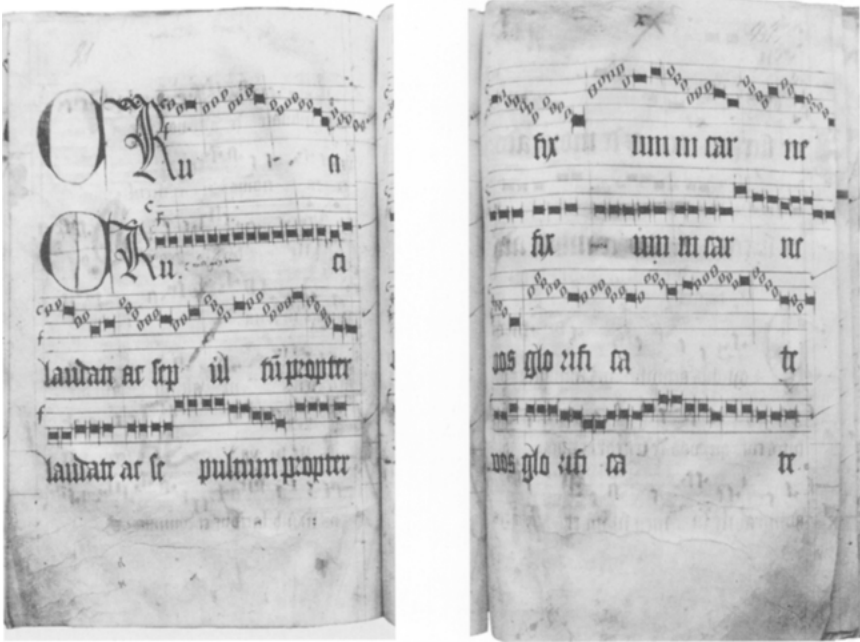 CRu ci
CRu. ci
laudate ac sep ul tū propter
laudate ac se pultum propter
fix um in car ne
fix um in car ne
vos glo rifi ca te
vos glo rifi ca te